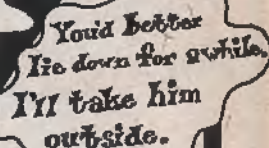 You'd better
lie down for awhile.
I'll take him
outside.